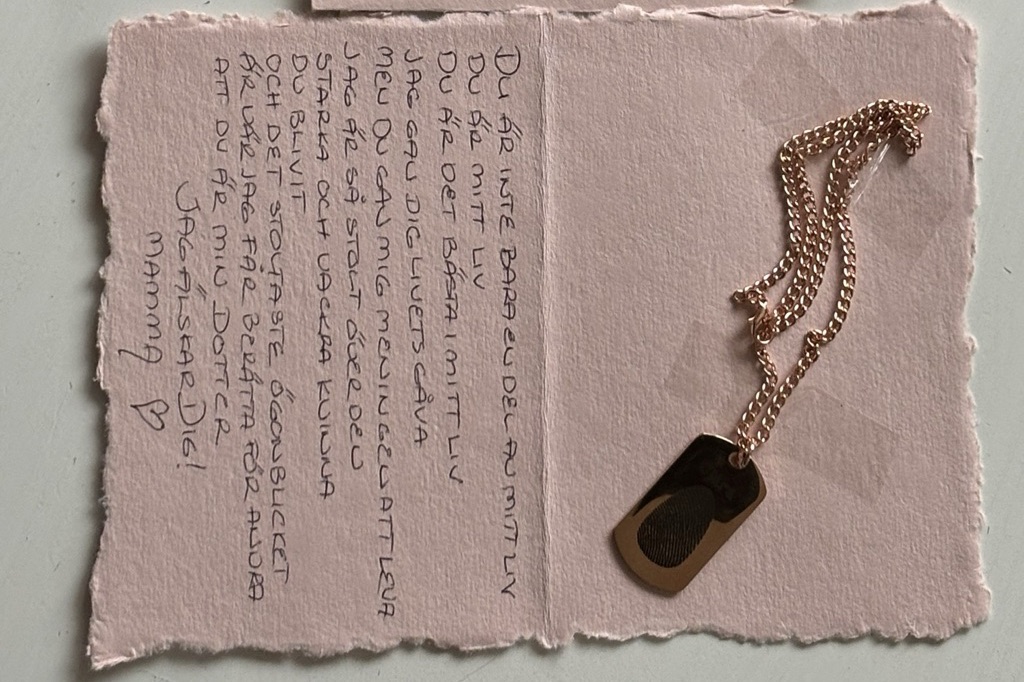 DU ÄR INTE BARA EN DEL AV MITT LIV
DU ÄR MITT LIV
DU ÄR DET BÄSTA I MITT LIV
JAG GAV DIG LIVETS GÅVA
MEN DU GAV MIG MENINGEN ATT LEVA
JAG ÄR SÅ STOLT ÖVER DEN
STARKA OCH VACKRA KVINNA
DU BLIVIT
OCH DET STOLTASTE ÖGONBLICKET
ÄR VAR JAG FÅR BERÄTTA FÖR ANDRA
ATT DU ÄR MIN DOTTER
JAG ÄLSKAR DIG!
MAMMA ♡